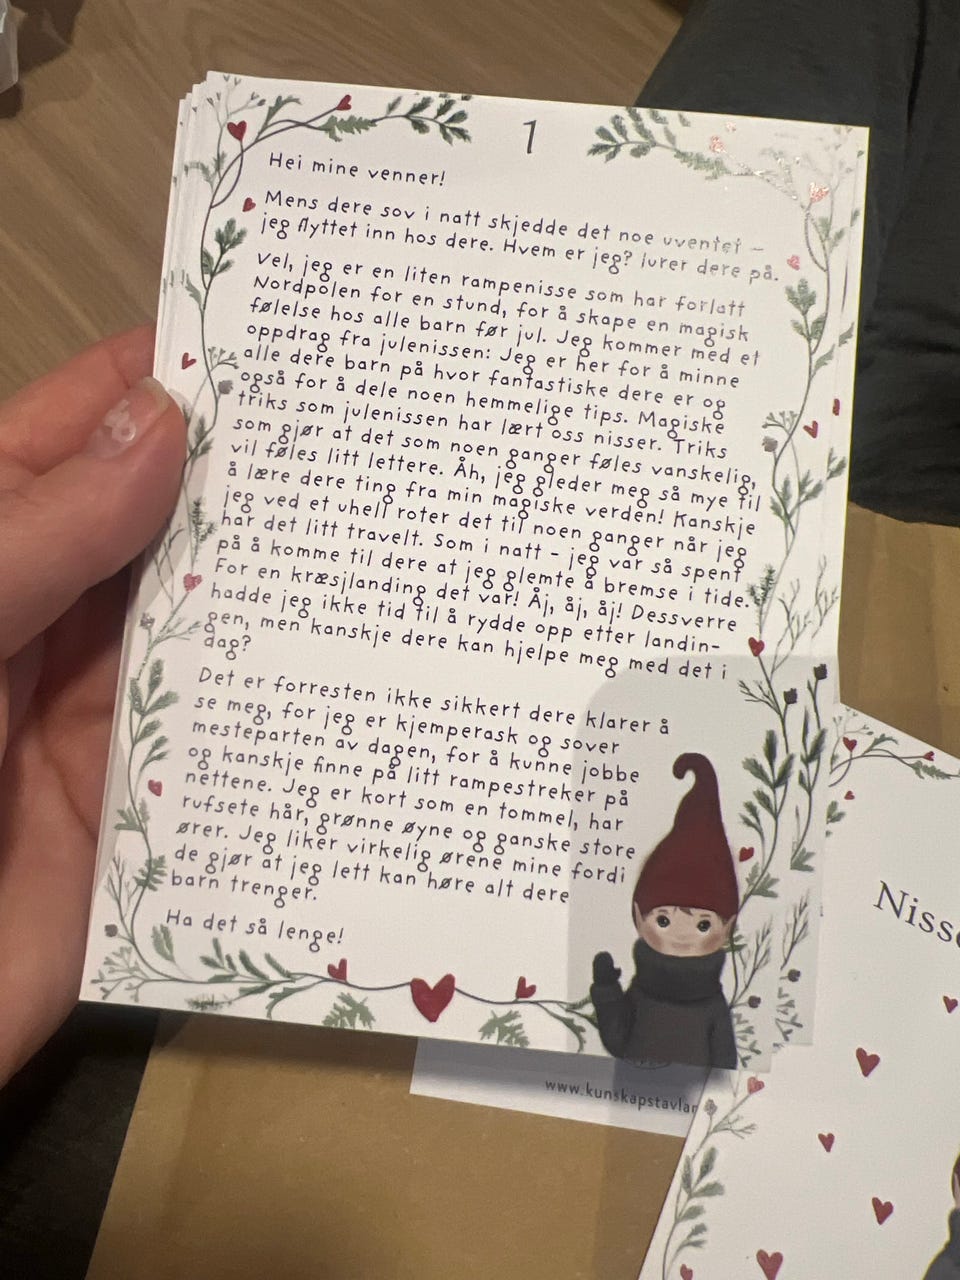 1
Hei mine venner!
Mens dere sov i natt skjedde det noe uventet –
jeg flyttet inn hos dere. Hvem er jeg? lurer dere på.
Vel, jeg er en liten rampenisse som har forlatt
Nordpolen for en stund, for å skape en magisk
følelse hos alle barn før jul. Jeg kommer med et
oppdrag fra julenissen: Jeg er her for å minne
alle dere barn på hvor fantastiske dere er og
også for å dele noen hemmelige tips. Magiske
triks som julenissen har lært oss nisser. Triks
som gjør at det som noen ganger føles vanskelig,
vil føles litt lettere. Åh, jeg gleder meg så mye til
å lære dere ting fra min magiske verden! Kanskje
jeg ved et uhell roter det til noen ganger når jeg
har det litt travelt. Som i natt – jeg var så spent
på å komme til dere at jeg glemte å bremse i tide.
For en kræsjlanding det var! Åj, åj, åj! Dessverre
hadde jeg ikke tid til å rydde opp etter landin-
gen, men kanskje dere kan hjelpe meg med det i
dag?
Det er forresten ikke sikkert dere klarer å
se meg, for jeg er kjemperask og sover
mesteparten av dagen, for å kunne jobbe
og kanskje finne på litt rampestreker på
nettene. Jeg er kort som en tommel, har
rufsete hår, grønne øyne og ganske store
ører. Jeg liker virkelig ørene mine fordi
de gjør at jeg lett kan høre alt dere
barn trenger.
Ha det så lenge!
www.kunskapstavlan
Nisse